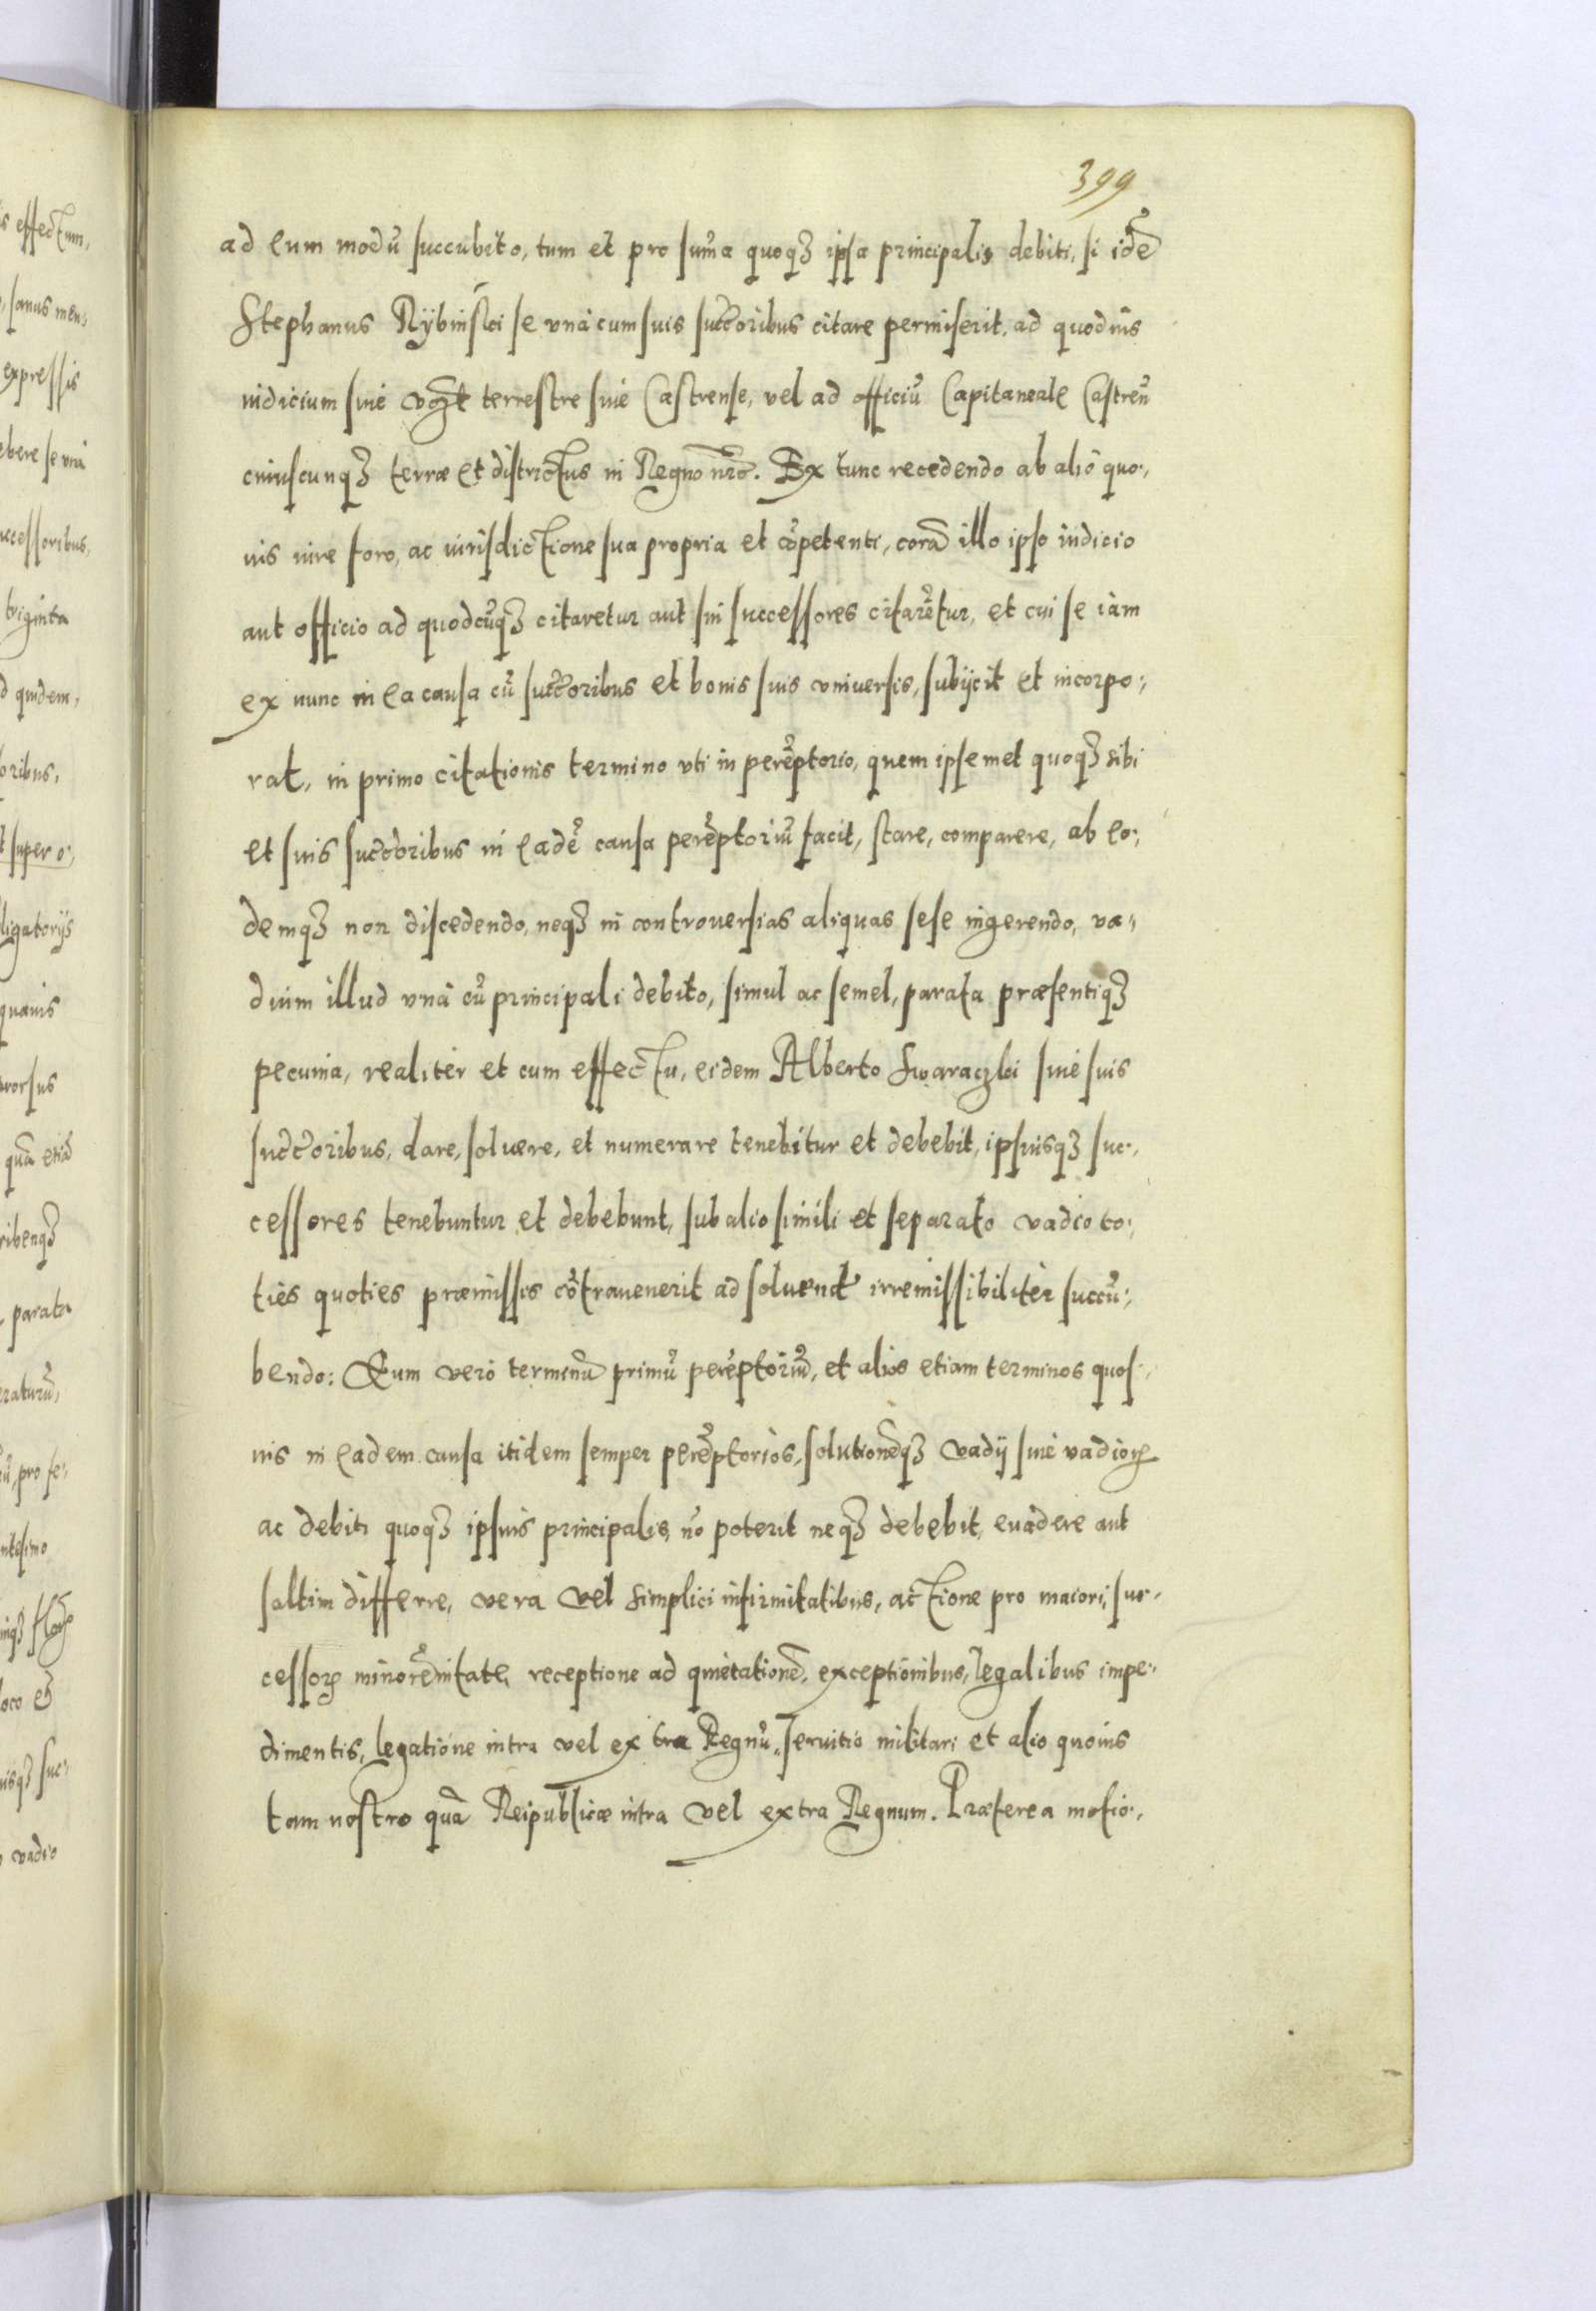 399
ad eum modũ succubito, tum et pro sum̃a quoqꝫ ipsa principalis debiti, si idẽ
Stephanus Rÿbinśki se vnà cum suis succ̃oribus citare permiserit, ad quoduis
iudicium siue terrestre siue Castrense, vel ad officiũ Capitaneale Castreñ
cuiuscunqꝫ terræ et districtus in Regno nr̃o. Ex tunc recedendo ab alio quo:,
uis iure foro, ac iurisdictione sua propria et cõpetenti, corã illo ipso iudicio
aut officio ad quodcũqꝫ citaretur aut sui successores citarẽtur, et cui se iàm
ex nunc in ea causa cũ succ̃oribus et bonis suis vniuersis, subÿcit et incorpo:,
rat, in primo citationis termino vti in perẽptorio, quem ipsemet quoqꝫ sibi
et suis succ̃oribus in eadẽ causa perẽptoriũ facit, stare, comparere, ab eo:,
demqꝫ non discedendo, neqꝫ in controuersias aliquas sese ingerendo, va:,
dium illud vnà cũ principali debito, simul ac semel, parata præsentiqꝫ
pecunia, realitèr et cum effectu, eidem Alberto Swaraczki siue suis
succ̃oribus, dare, soluere, et numerare tenebitur et debebit, ipsiusqꝫ suc:,
cessores tenebuntur et debebunt, sub alio simili et separato vadio to:,
tiès quoties præmissis cõtrauenerit ad soluend̃ irremissibilitèr succũ:,
bendo: Eum verò terminũ primũ perẽptoriũ, et alios etiam terminos quos:,
uis in eadem causa itidem semper perẽptorios, solutionẽqꝫ vadÿ siue vadioꝝ
ac debiti quoqꝫ ipsius principalis, nõ poterit neqꝫ debebit, euadere aut
saltim differre, vera vel simplici infirmitatibus, actione pro maiori, suc:,
cessoꝝ minorẽnitate, receptione ad quietationẽ, exceptionibus, legalibus impe:,
dimentis, legatione intra vel extra Regnũ, seruitio militari et alio quouis
tam nostro quã Reipublicæ intra vel extra Regnum. Præterea motio:,